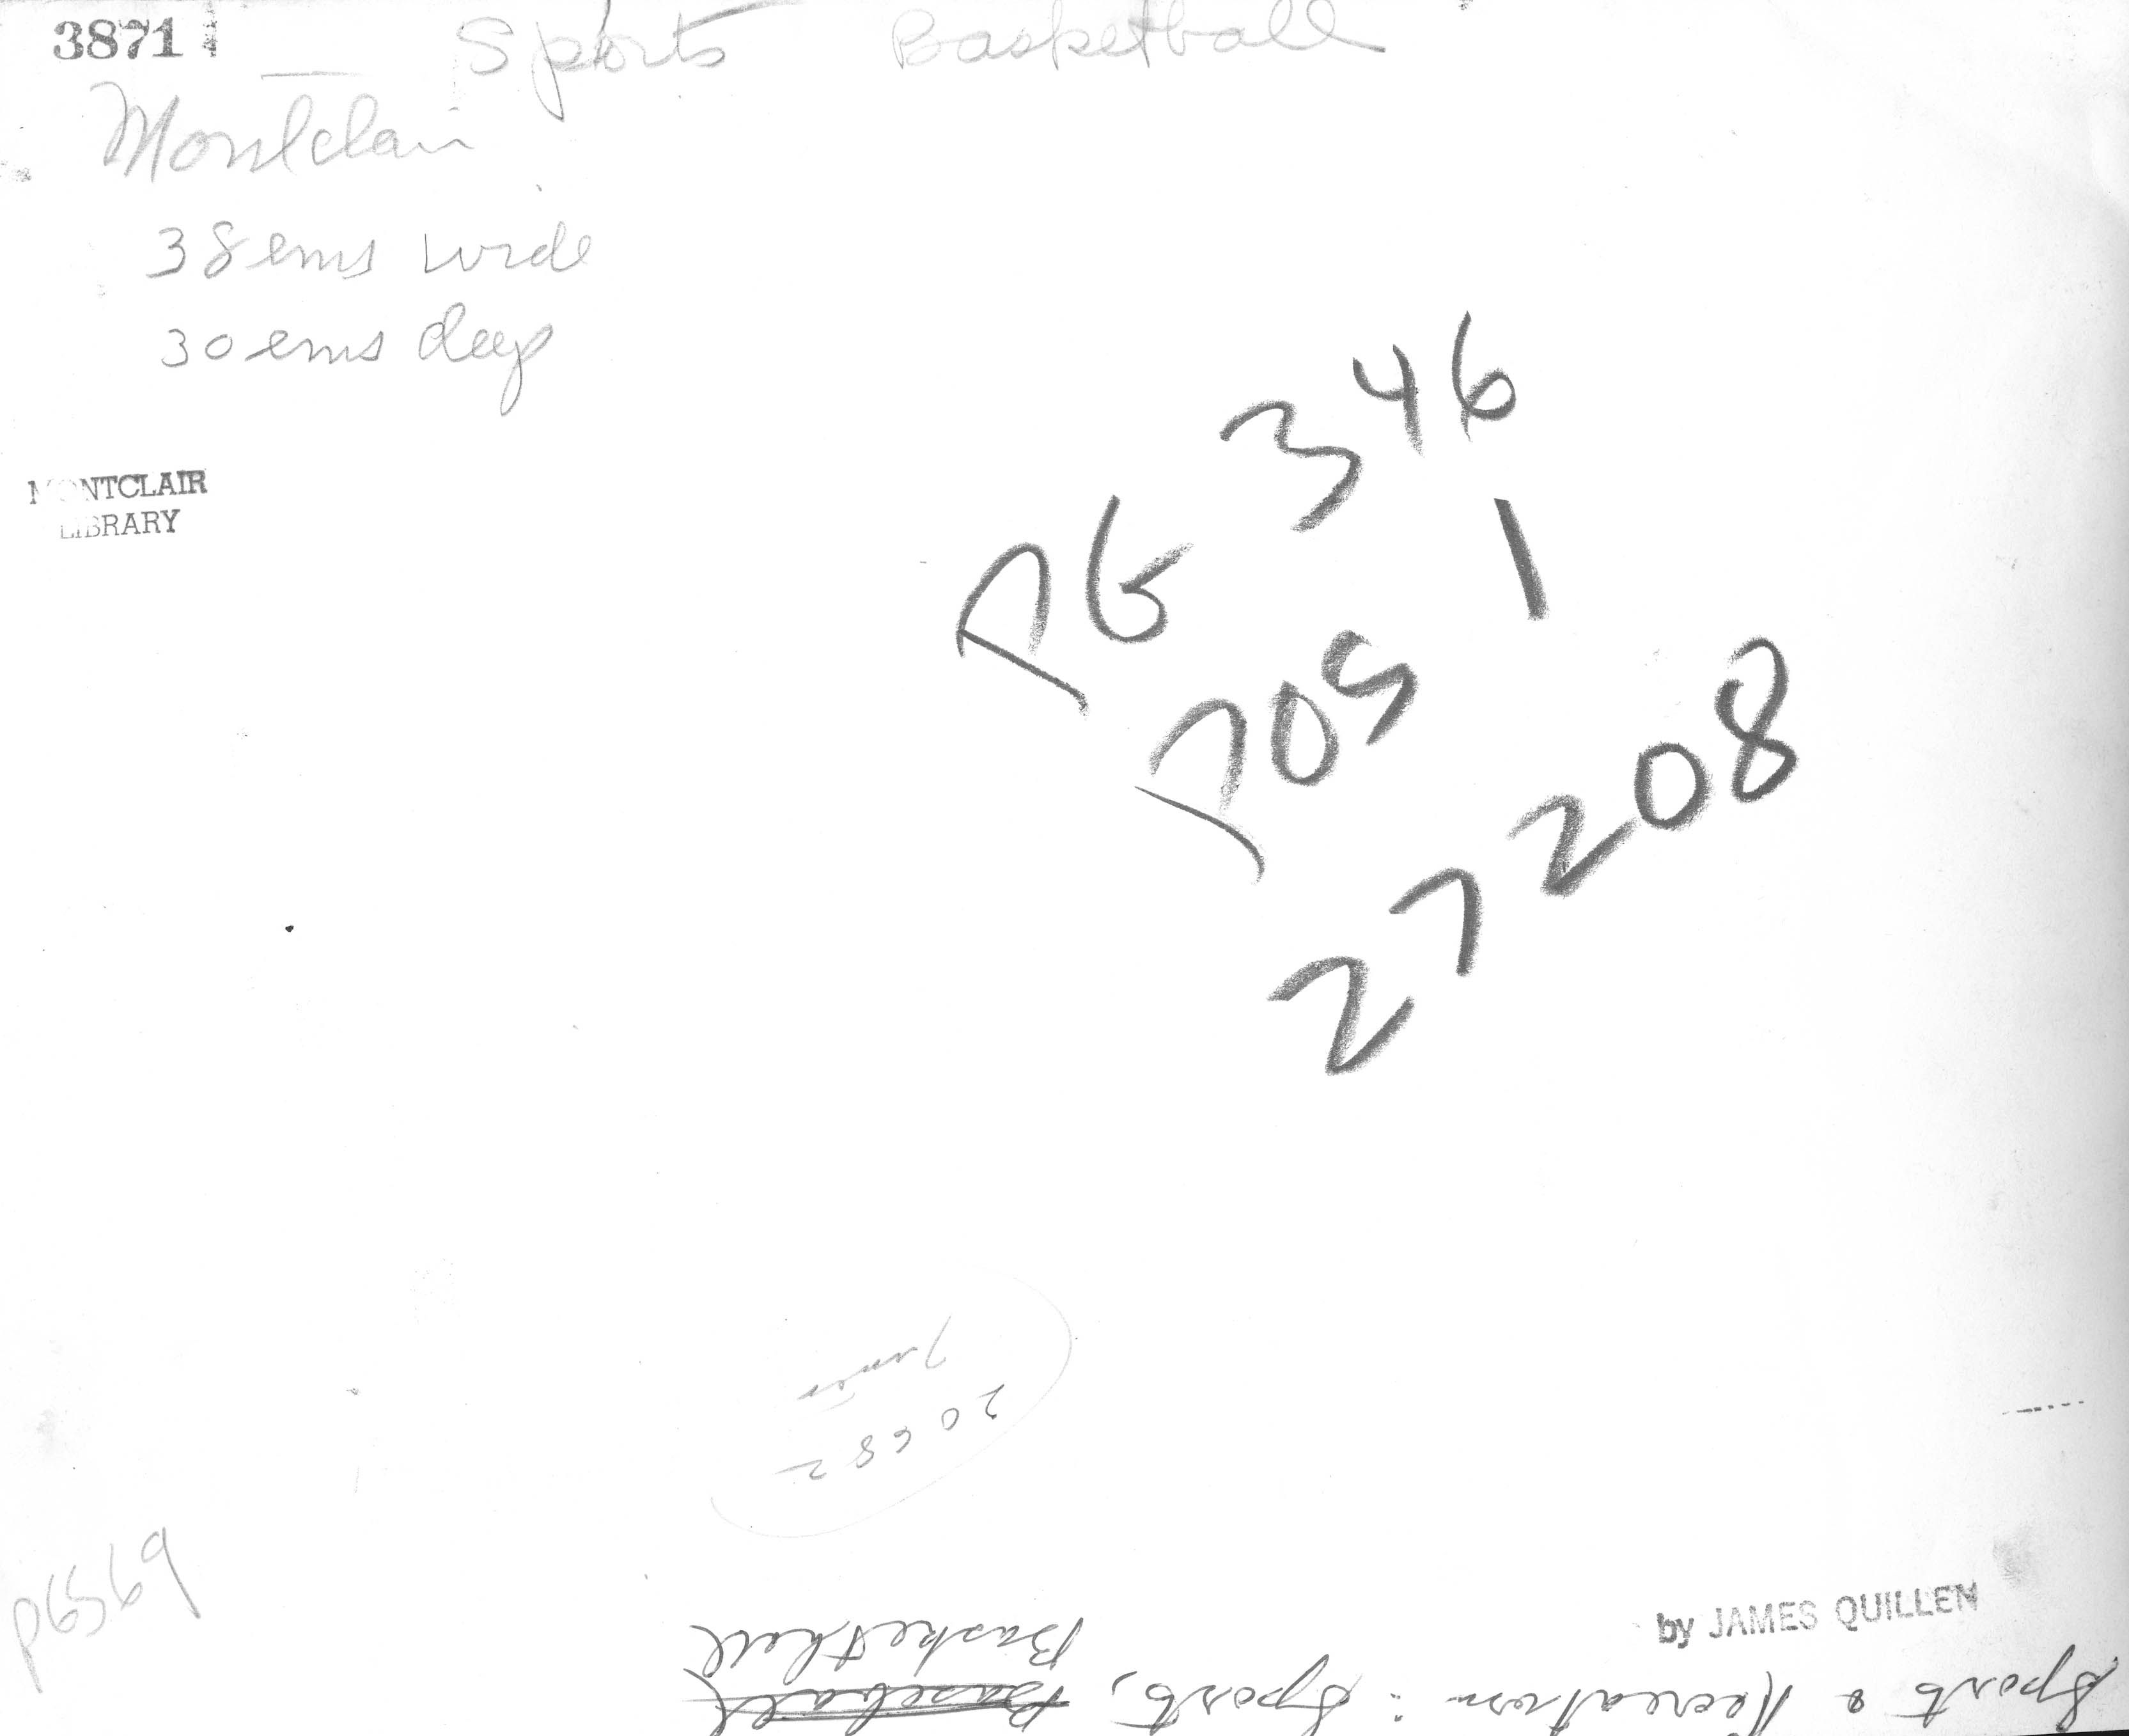 3871
Sports Basketball
Montclair
38 ems wide
30 ems deep
MONTCLAIR
LIBRARY
PG 346
POS 1
27208
20682
PG569
by JAMES QUILLEN
Sports & Recreation : Sports, Baseball
Basketball